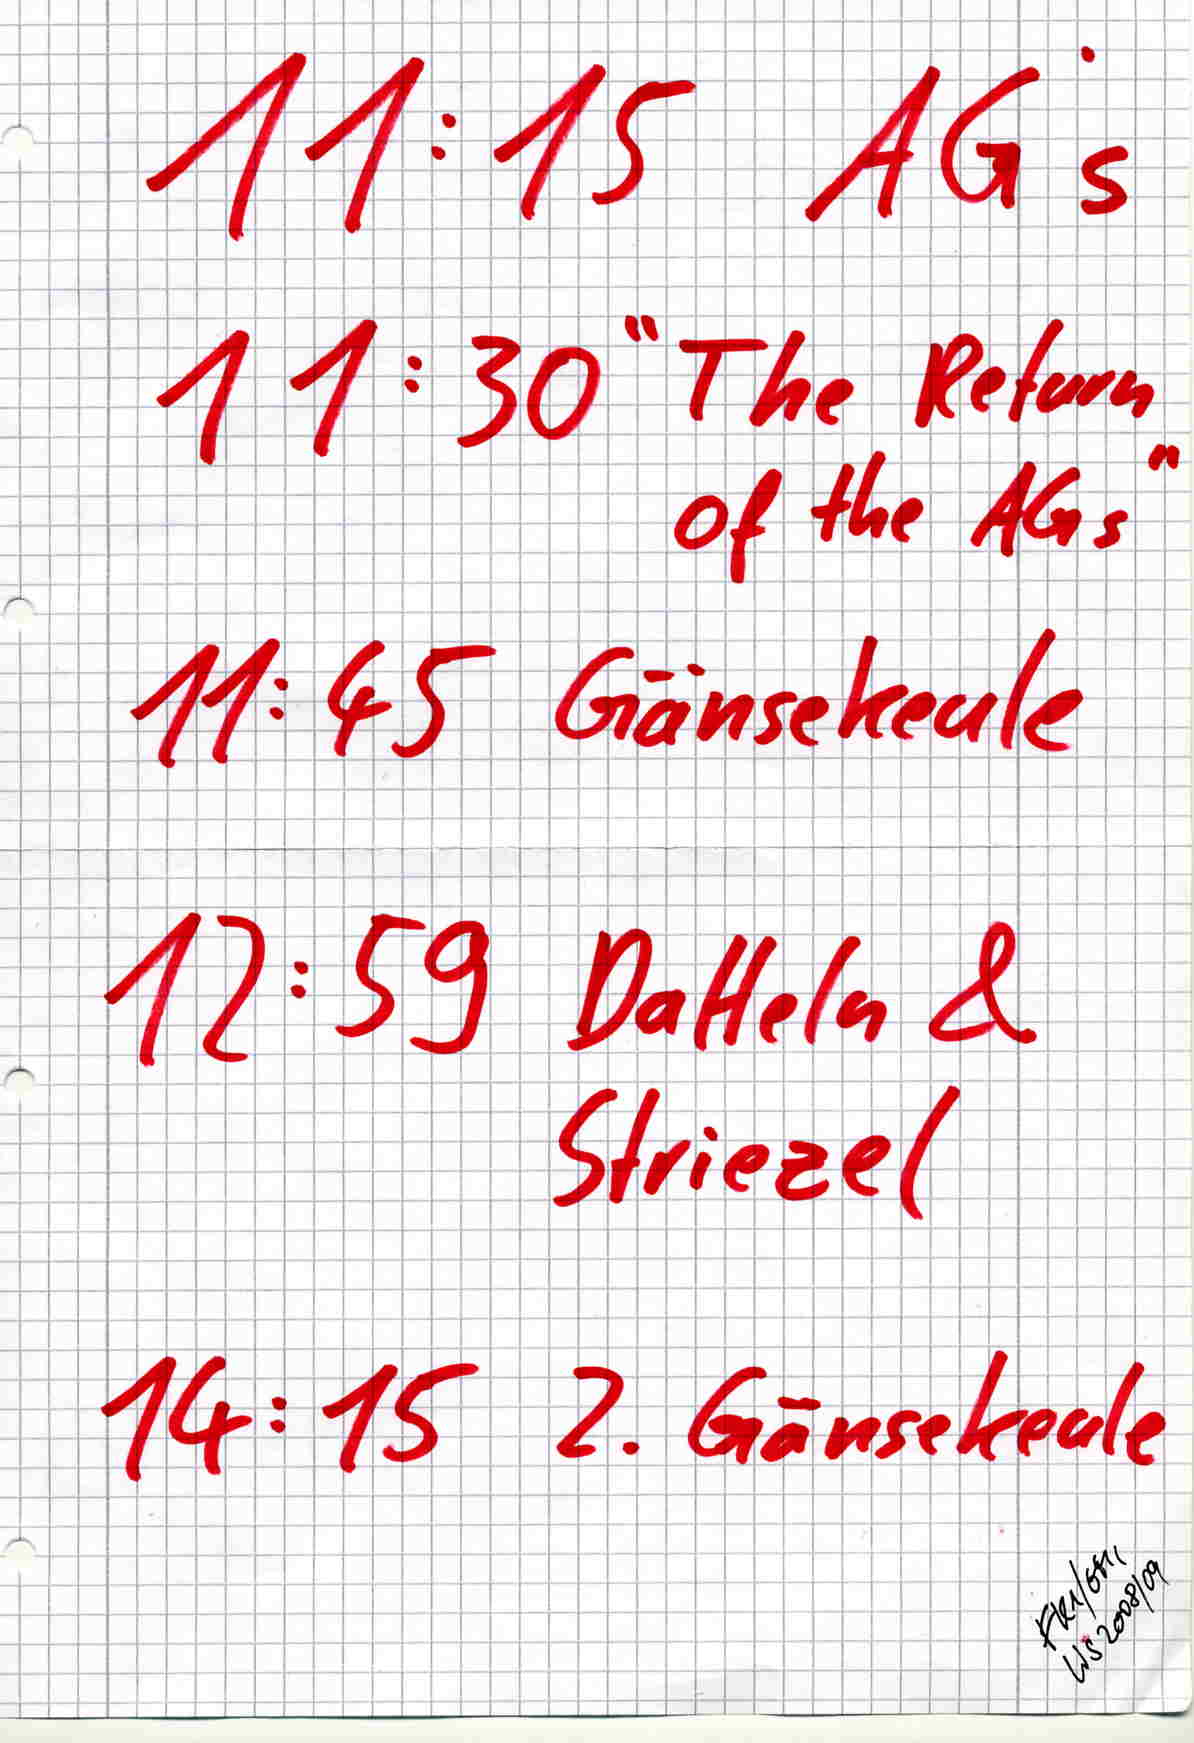 11:15 AG's
11:30 "The Return
of the AGs"
11:45 Gänsekeule
12:59 Datteln &
Striezel
14:15 2. Gänsekeule
WS 2008/09